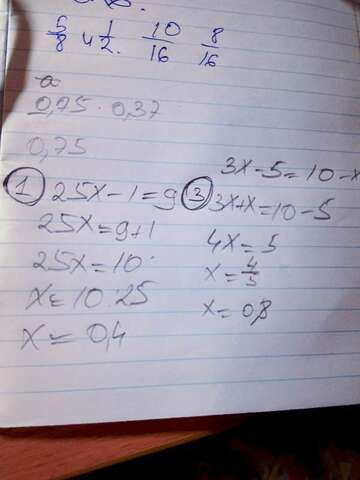 5/8 и 1/2. 10/16 8/16
a
0,95 · 0,37
0,75
① 25x-1=9
25x=9+1
25x=10
x=10:25
x=0,4
3x-5=10-x
③ 3x+x=10-5
4x=5
x=4/5
x=0,8